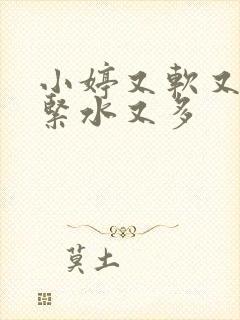 小婷又軟又
緊水又多
莫土